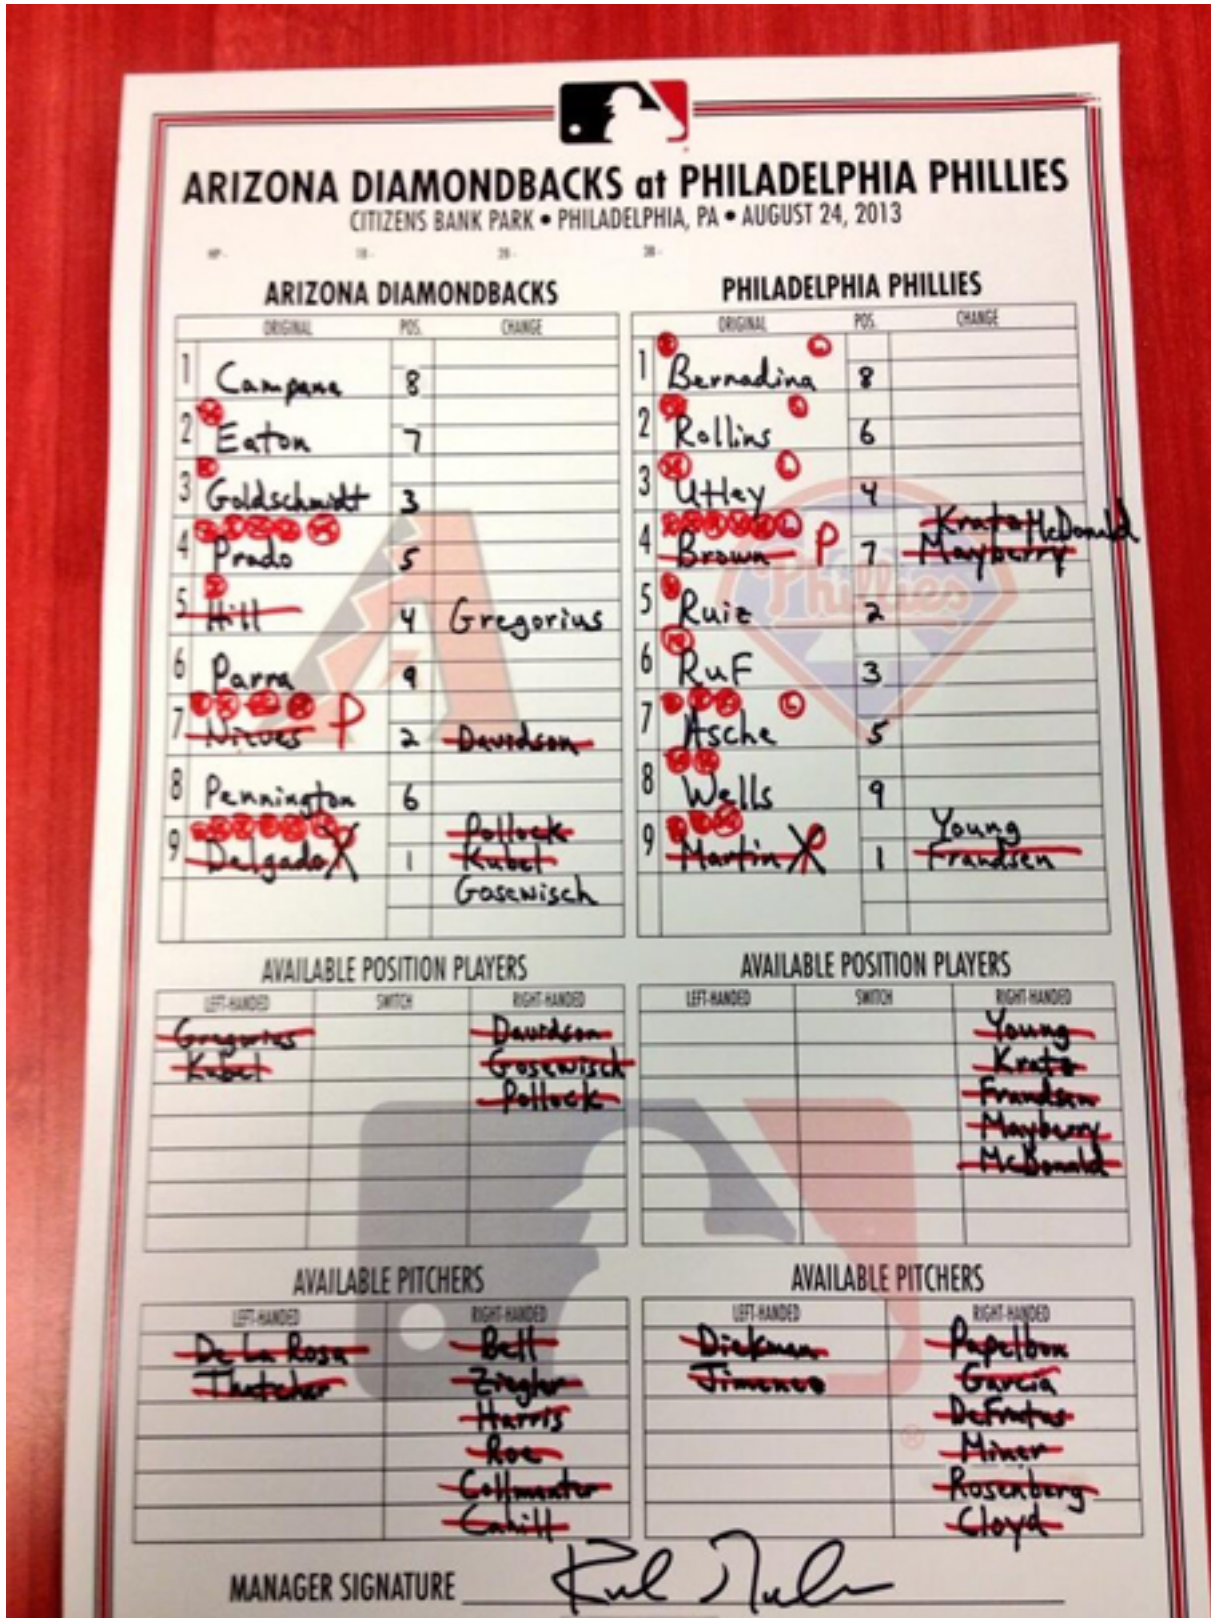 ARIZONA DIAMONDBACKS at PHILADELPHIA PHILLIES
CITIZENS BANK PARK • PHILADELPHIA, PA • AUGUST 24, 2013
HP- 1B- 2B- 3B-
ARIZONA DIAMONDBACKS
ORIGINAL POS. CHANGE
1 Campana 8
2 Eaton 7
3 Goldschmidt 3
4 Prado 5
5 Hill 4 Gregorius
6 Parra 9
7 Nieves P 2 Davidson
8 Pennington 6
Pollock
9 Delgado X 1 Kubel
Gosewisch
PHILADELPHIA PHILLIES
ORIGINAL POS. CHANGE
1 Bernadina 8
2 Rollins 6
3 Utley 4
Kratz McDonald
4 Brown P 7 Mayberry
5 Ruiz 2
6 Ruf 3
7 Asche 5
8 Wells 9
Young
9 Martin X 1 Frandsen
AVAILABLE POSITION PLAYERS
LEFT-HANDED SWITCH RIGHT-HANDED
Gregorius Davidson
Kubel Gosewisch
Pollock
AVAILABLE POSITION PLAYERS
LEFT-HANDED SWITCH RIGHT-HANDED
Young
Kratz
Frandsen
Mayberry
McDonald
Phillies
AVAILABLE PITCHERS
LEFT-HANDED RIGHT-HANDED
De La Rosa Bell
Thatcher Ziegler
Harris
Roe
Collmenter
Cahill
AVAILABLE PITCHERS
LEFT-HANDED RIGHT-HANDED
Diekman Papelbon
Jimenez Garcia
DeFratus
Miner
Rosenberg
Cloyd
MANAGER SIGNATURE